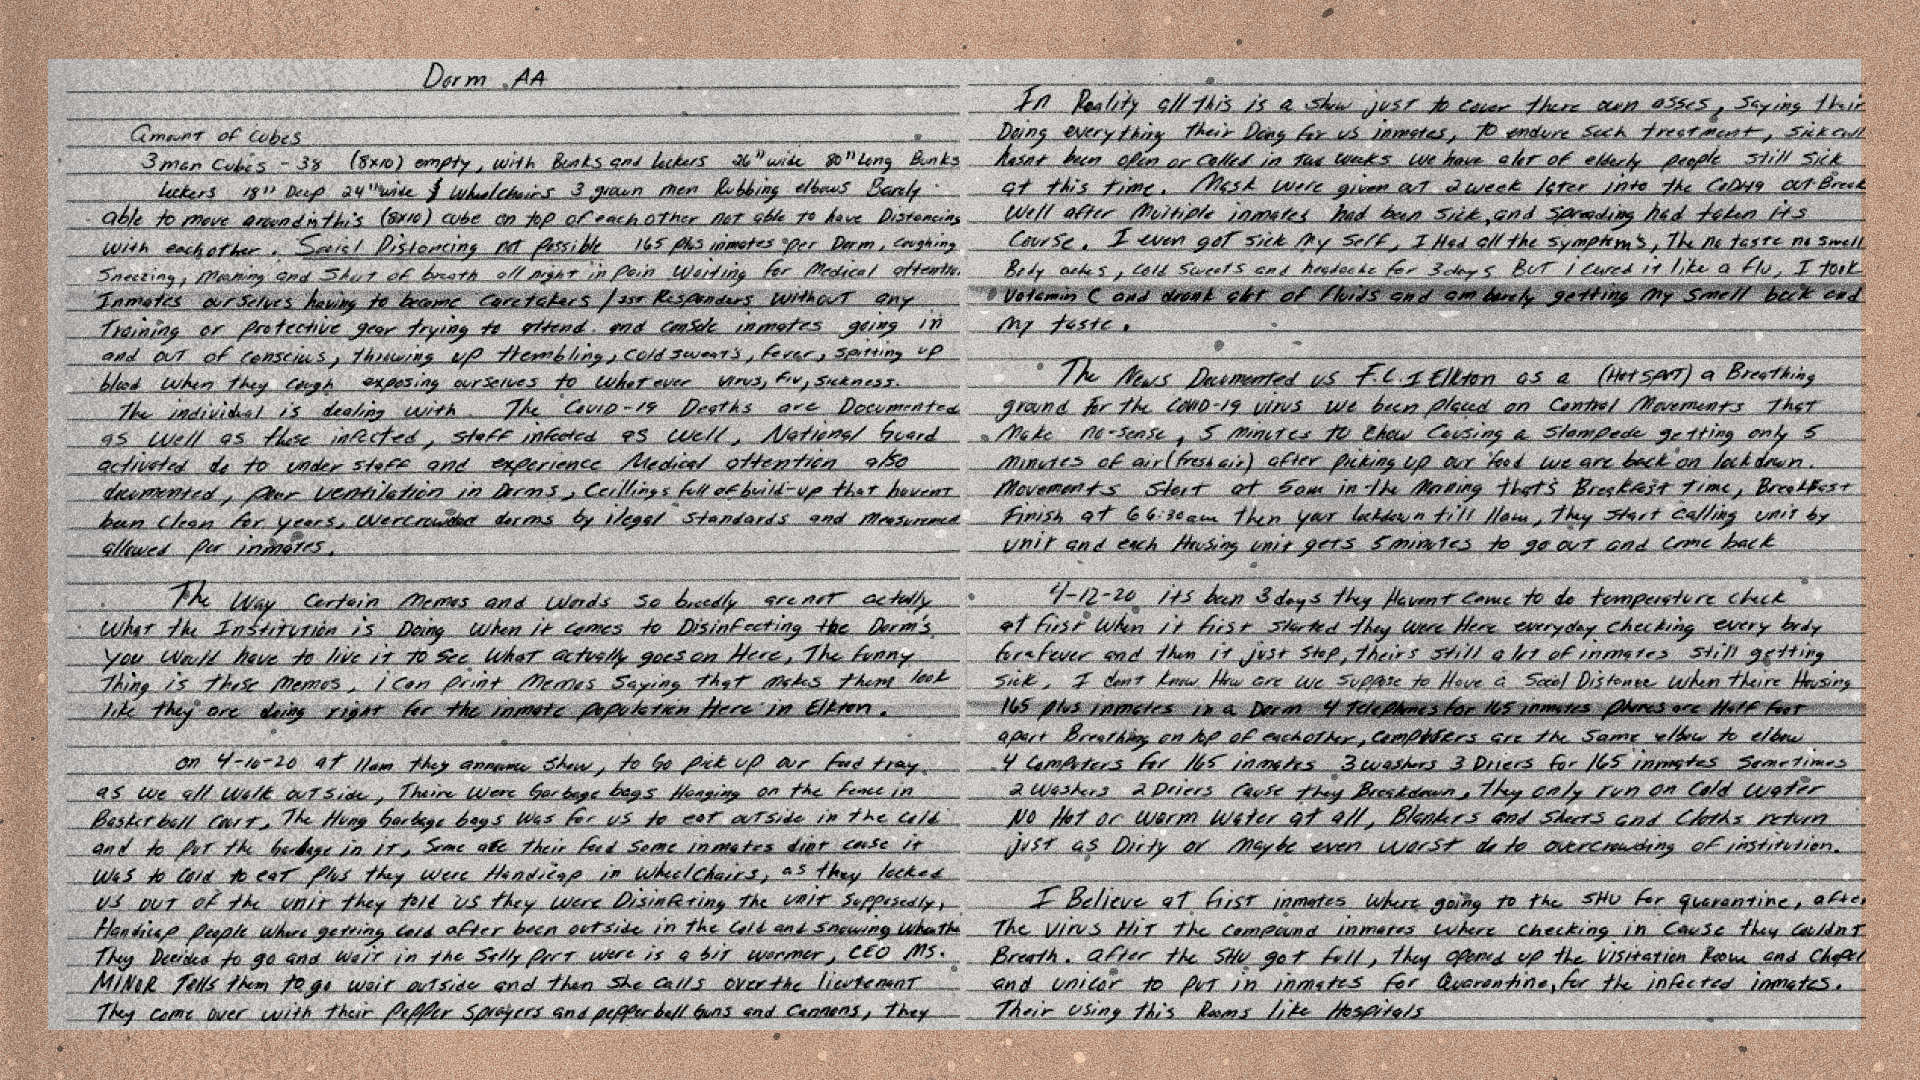 Dorm AA
Amount of cubes
3 man Cubes - 38 (8x10) empty, with Bunks and lockers 26" wide 80" long Bunks
lockers 18" Deep 24" wide & Wheelchairs 3 grown men Rubbing elbows Barely
able to move around in this (8x10) cube on top of each other not able to have Distancing
with each other. Social Distancing not possible 165 plus inmates per Dorm, coughing
Sneezing, moaning and Short of breath all night in pain Waiting for Medical attention
Inmates ourselves having to become Caretakers / 1st Responders without any
Training or protective gear trying to attend and console inmates going in
and out of conscius, throwing up thembling, cold sweats, fever, spitting up
blood when they cough exposing ourselves to whatever virus, flu, sickness.
The individual is dealing with. The Covid-19 Deaths are Documented
as well as those infected, staff infected as well, National Guard
activated do to under staff and experience Medical attention also
documented, poor ventilation in Dorms, Ceillings full of build-up that havent
been clean for years, overcrowded dorms by ilegal standards and measurement
allowed per inmates.
The Way Certain Memos and Words so broadly are not actully
What the Institution is Doing when it comes to Disinfecting the Dorm's
you would have to live it to see what actually goes on Here, The funny
thing is these Memos, i can print Memos Saying that makes them look
like they are doing right for the inmate population Here in Elkton.
on 4-10-20 at 11am they announce Show, to Go pick up our food tray.
as we all walk outside, Theire were Garbage bags Hanging on the fence in
Basketball Court, The Hung Garbage bags was for us to eat outside in the cold
and to put the garbage in it, Some ate their food some inmates dint cause it
was to cold to eat plus they were Handicap in Wheelchairs, as they locked
us out of the unit they told us they were Disinfeting the unit Supposedly,
Handicap people where getting cold after been outside in the cold and snowing wheathe
They Decided to go and wait in the Sally port were is a bit warmer, CEO MS.
MINOR Tells them to go wait outside and then she calls over the lieutenant
They come over with their Pepper Sprayers and pepperball Guns and Cannons, they
In Reality all this is a show just to cover there own asses, saying their
Doing everything their Dong for us inmates, to endure such treatment, sickcall
hasnt been open or called in two weeks we have alot of elderly people still sick
at this time. Mask were given out 2 week later into the CoD49 out-Break
well after Multiple inmates had been sick, and spreading had taken its
Course. I even got sick my self, I Had all the symptom's, The no taste no smell
Body aches, cold sweats and headache for 3 days BUT i cured it like a flu, I took
Vatamin C and drank alot of fluids and am barely getting my smell back and
my taste.
The News Documented us F.C.I Elkton as a (HotSpot) a Breathing
ground for the COVID-19 virus we been placed on Control Movements that
Make no-sense, 5 minutes to Chow Causing a Stampede getting only 5
minutes of air (fresh air) after picking up our food we are back on lockdown.
Movements Start at 5am in the Morning that's Breakfast time, Breakfast
Finish at 6 6:30am then your lockdown till 11am, they start calling unit by
unit and each Housing unit gets 5 minutes to go out and come back
4-12-20 its been 3 days they Havent come to do temperature check
at first when it first started they were Here everyday checking every body
for a fever and then it just stop, their's still a lot of inmates still getting
sick, I dont know How are we suppose to Have a Social Distance when theire Housing
165 plus inmates in a Dorm 4 telephones for 165 inmates phones are Half Foot
apart Breathing on top of eachother, computers are the same elbow to elbow
4 Computers for 165 inmates 3 washers 3 Driers for 165 inmates Sometimes
2 washers 2 Driers Cause they Breakdown, They only run on Cold water
No Hot or warm water at all, Blankets and Sheets and Cloths return
just as Dirty or Maybe even worst do to overcrowding of institution.
I Believe at first inmates where going to the SHU for quarantine, after
The virus Hit the compound inmates where checking in Cause they couldnt
Breath. after the SHU got full, they opened up the Visitation Room and Chapel
and unicor to put in inmates for Quarantine, for the infected inmates.
Their using this Rooms like Hospitals